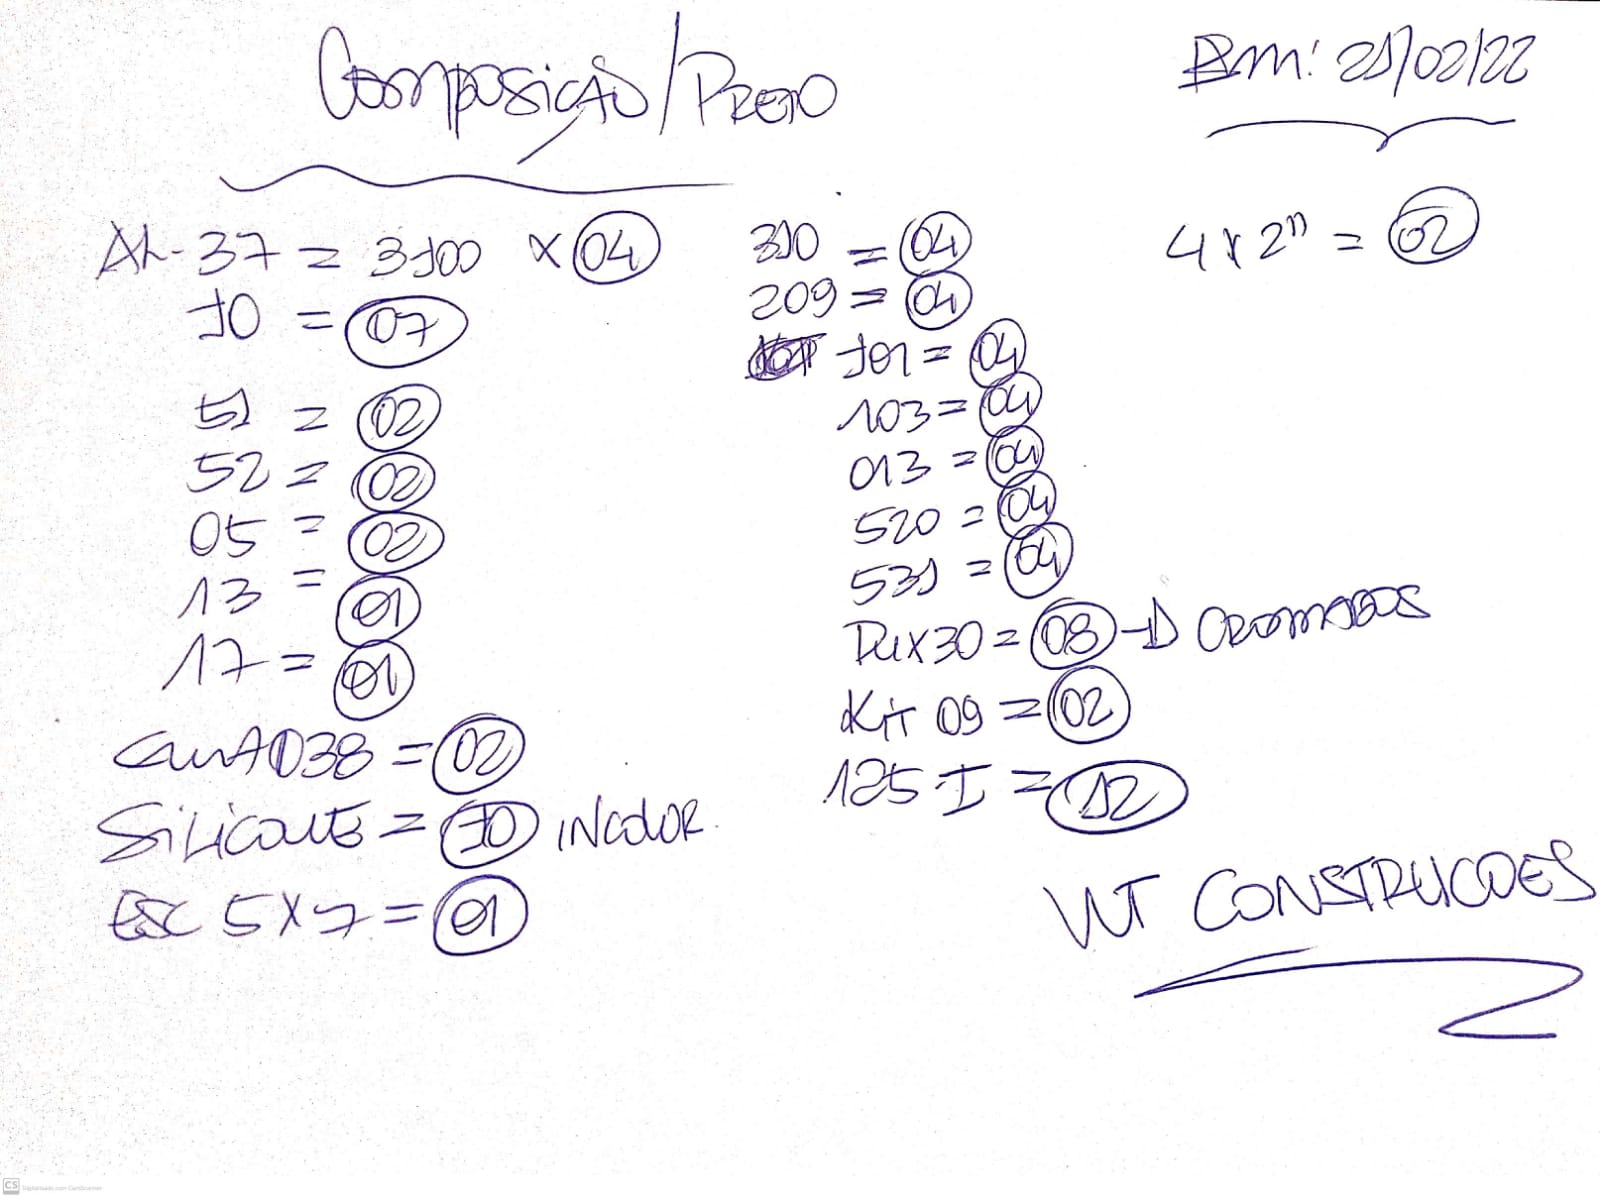 Composição/Preto
Em: 21/02/22
AL-37 = 3100 x 04
10 = 07
51 = 02
52 = 02
05 = 02
13 = 01
17 = 01
38 = 02
Silicone = 10 incolor
Esc 5x7 = 01
310 = 04
209 = 04
101 = 04
103 = 04
013 = 04
520 = 04
531 = 04
30 = 08 → Cromados
Kit 09 = 02
125-I = 12
4x2" = 02
Construcoes
CS Digitalizado com CamScanner